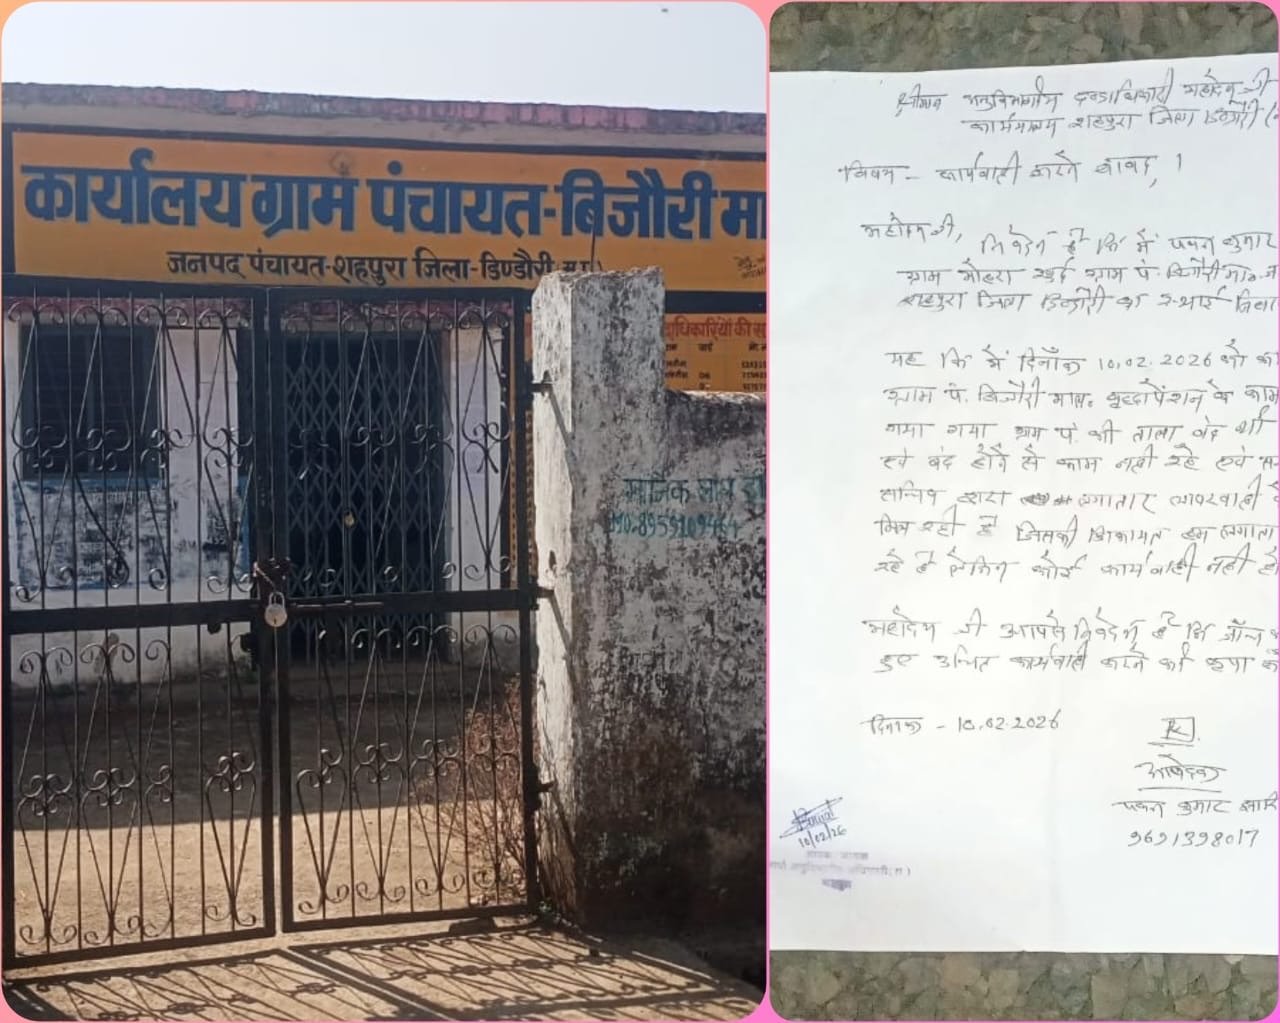 कार्यालय ग्राम पंचायत-बिजौरी मा
जनपद पंचायत-शहपुरा जिला-डिण्डौरी म.प्र.)
मो.
MO.8959109464
श्रीमान अनुविभागीय दण्डाधिकारी महोदय जी
कार्यालय शहपुरा जिला डिण्डौरी (
विषय - कार्यवाही करने बावद,।
महोदय जी,
निवेदन है कि मैं पवन कुमार
ग्राम मोहरा खुर्द ग्राम पं. बिजौरी मा॰ ज
शहपुरा जिला डिण्डौरी का स्थाई निवा
यह कि मैं दिनाँक 10.02.2026 को का
ग्राम पं. बिजौरी माल॰ वृद्धापेंशन के काम
गया गया ग्राम पं. की ताला बंद थी
एवं बंद होने से काम नही रहे एवं स
सचिव द्वारा लगातार लापरवाही दे
मिल रही है जिसकी शिकायत हम लगाता
रहे है लेकिन कोई कार्यवाही नही हो
महोदय जी आपसे निवेदन है कि जाँच क
हुए उचित कार्यवाही करने की कृपा क
दिनाक - 10.02.2026
आवेदक
पवन कुमार
9691398017
10/02/26